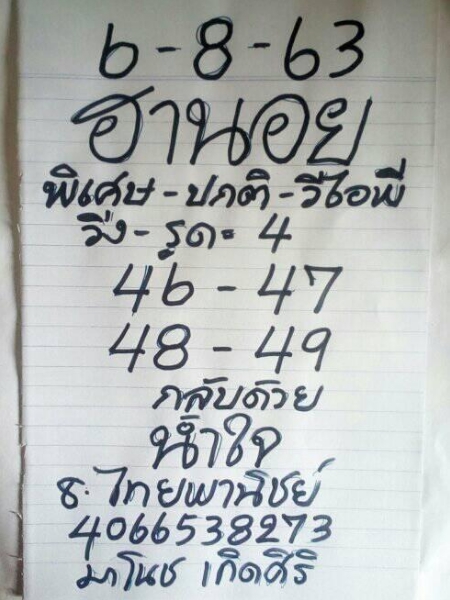 6-8-63
ฮานอย
พิเศษ-ปกติ-วีไอพี
วิ่ง-รูด= 4
46-47
48-49
กลับด้วย
น้ำใจ
ธ.ไทยพานิชย์
4066538273
มาโนช เกิดศิริ